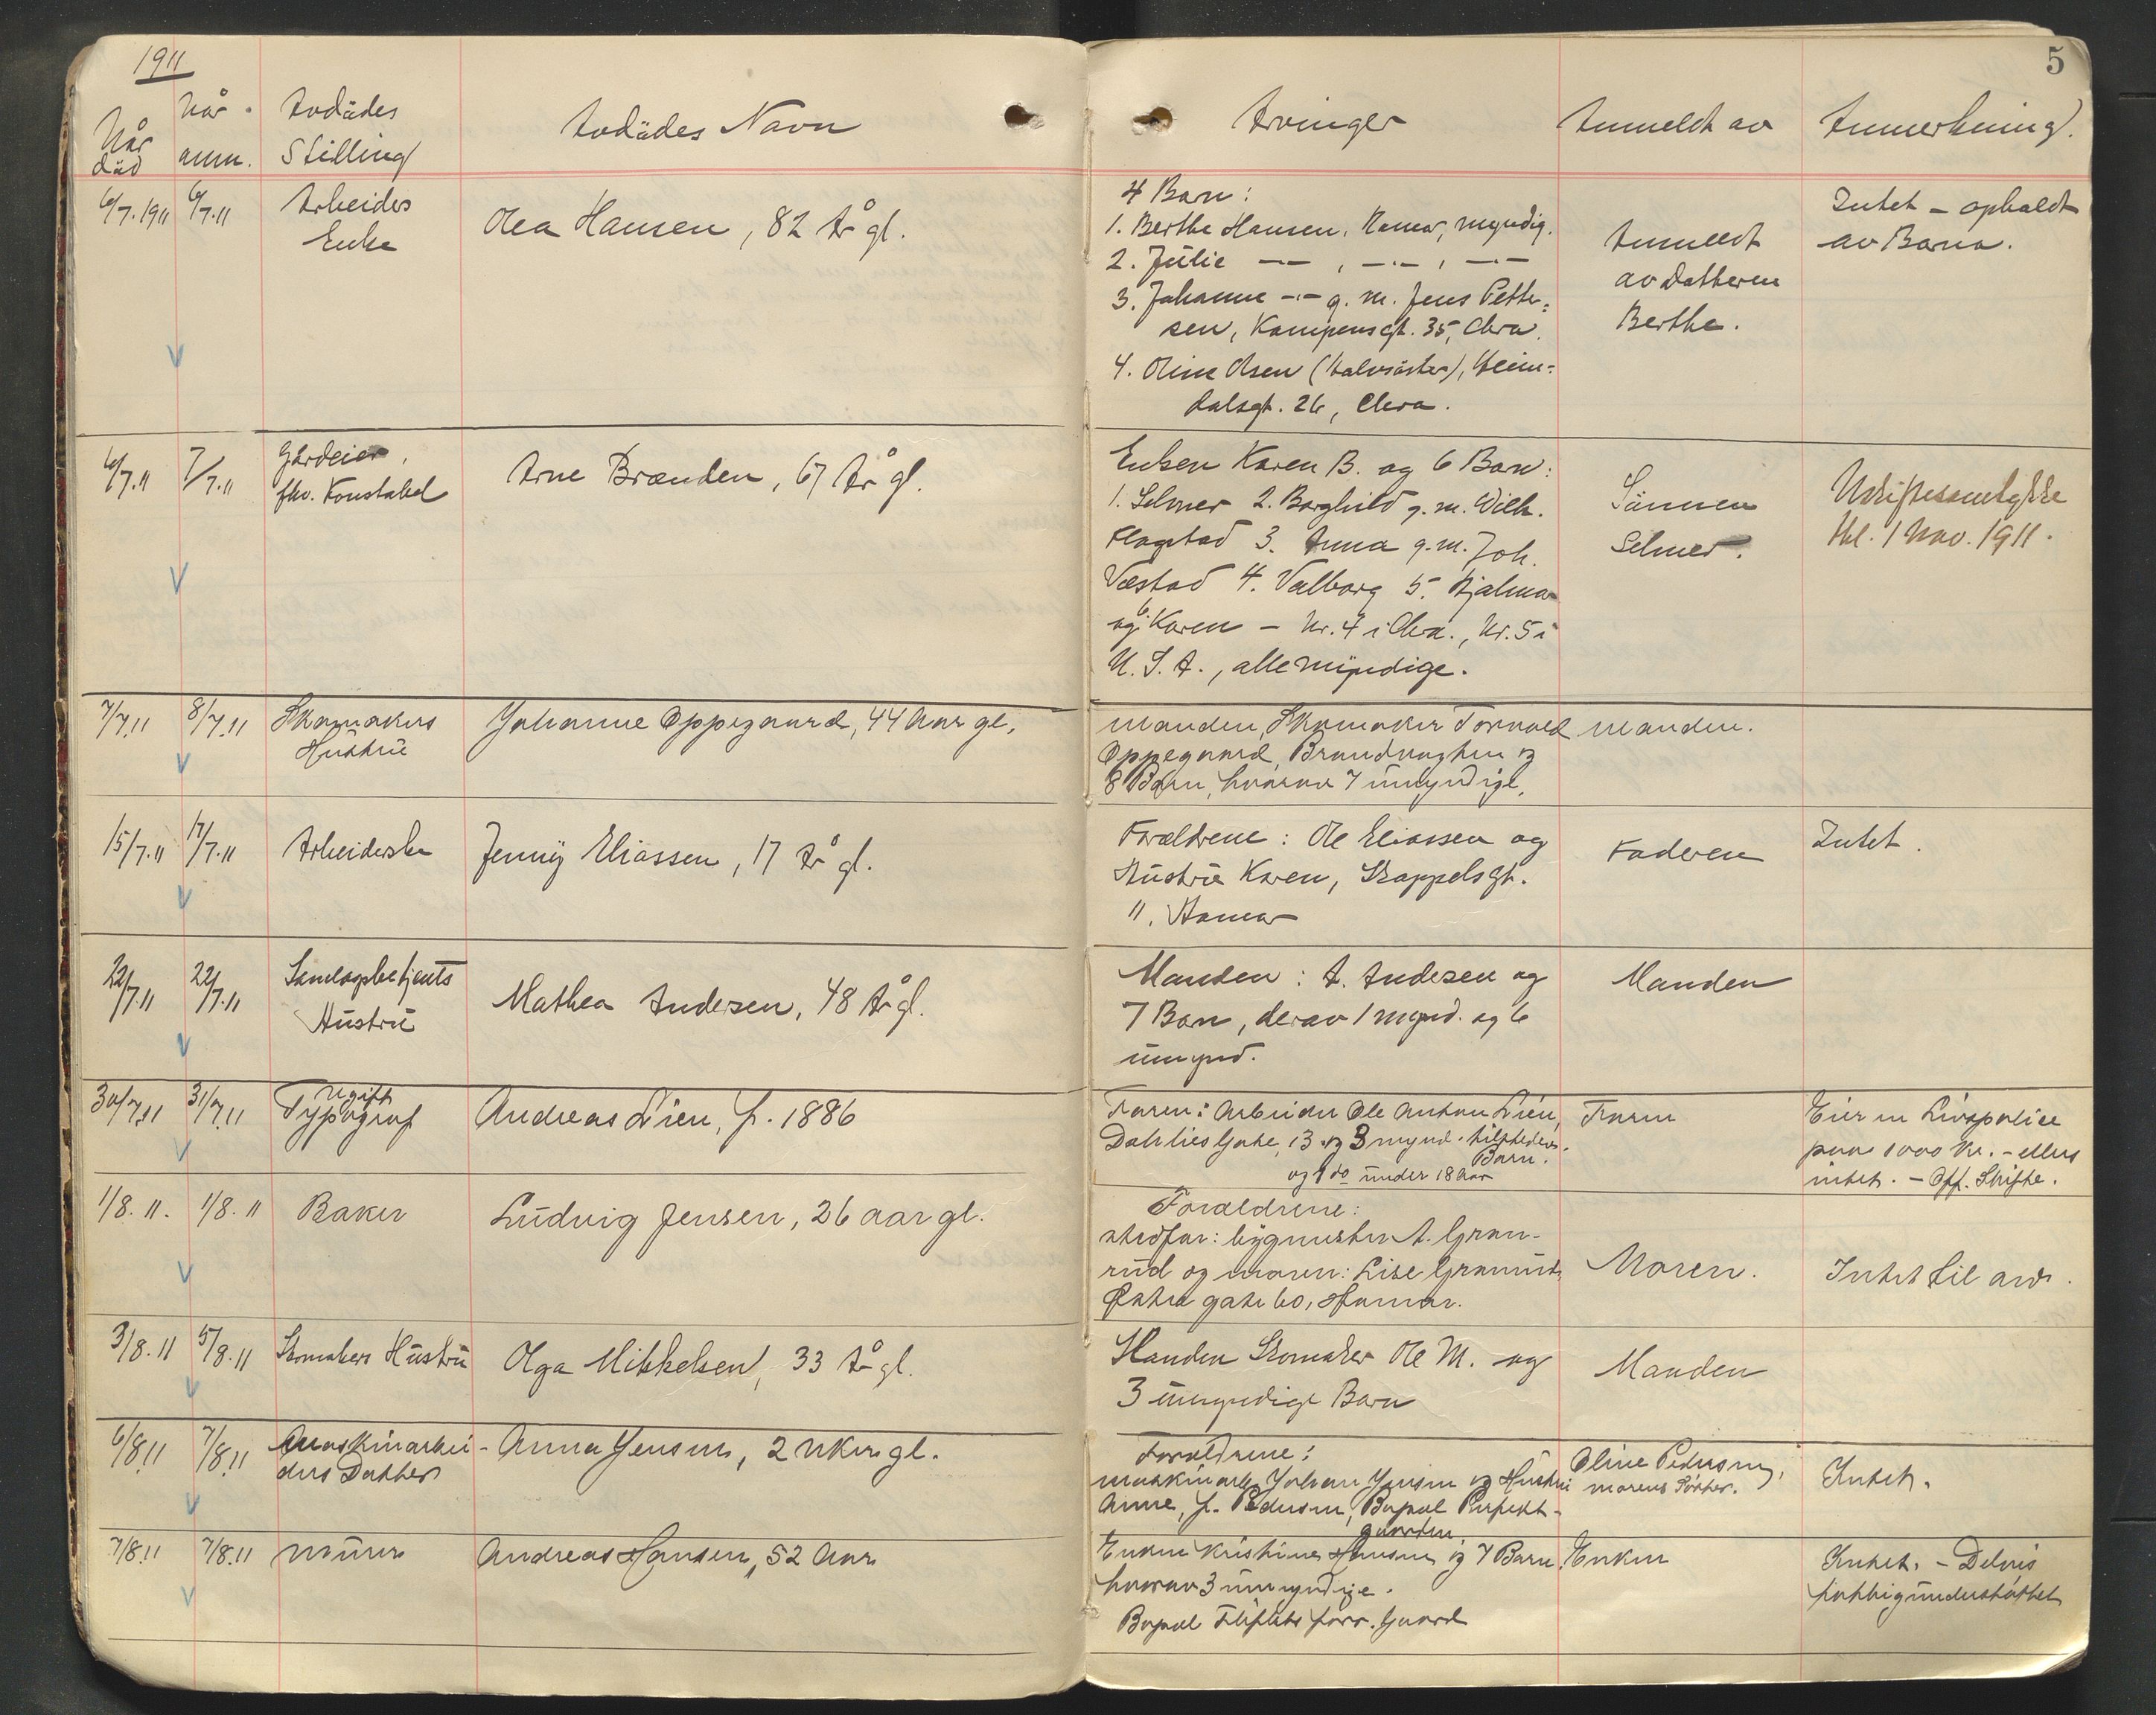 1911
5
Når død
Når anm.
Avdødes Stilling
Avdødes Navn
Arvinger
Anmeldt av
Anmerkning.
6/7.1911 6/7.11 Arbeider Enke
Olea Hansen, 82 År gl.
4 Barn:
1. Berthe Hansen, Hamar, myndig.
2. Julie -"- , -"- , -"-
3. Johanne -"- g. m. Jens Petter=
sen, Kampensgt. 35, Chra.
4. Oline Olsen (Halvsøster), Heim=
dalsgt. 26, Chra.
Anmeldt
av Datteren
Berthe.
Intet - opholdt
av Barna.
6/7.11 7/7.11 Gårdeier,
fhv. Konstabel
Arne Brænden, 67 År gl.
Enken Karen B. og 6 Barn:
1. Selmer 2. Borghild g. m. Wilh.
Flagstad 3. Anna g. m. Joh.
Vestad 4. Valborg 5. Hjalmar
og 6. Karen - Nr. 4 i Chra., Nr. 5 i
U. S. A., alle myndige.
Sønnen
Selmer.
Uskiftesamtykke
Hl. 1 Nov. 1911.
7/7.11 8/7.11 Skomakers
Hustru
Johanne Oppegaard, 44 Aar gl.
Manden, Skomaker Torvald
Oppegaard, Brandvagten og
8 Barn, hvorav 7 umyndige.
Manden.
15/7.11 17/7.11 Arbeiderske
Jenny Eliassen, 17 År gl.
Forældrene: Ole Eliassen og
Hustru Karen, Skappelsgt.
11, Hamar
Faderen
Intet.
22/7.11 22/7.11
Hustru
Mathea Andersen, 48 År gl.
Manden: A. Andersen og
7 Barn, derav 1 mynd. og 6
umynd.
Manden
30/7.11 31/7.11 Ugift
Typograf
Andreas Lien, f. 1886
Faren: Arbeider Ole Anton Lien,
Gate, 13 og 3 mynd.
Barn.
og 1 do under 18 Aar
Faren
Eier en Livspolice
paa 1000 Kr. - ellers
intet. - Off. Skifte.
1/8.11. 1/8.11 Baker
Ludvig Jensen, 26 aar gl.
Forældrene:
stedfar: bygmester A. Gran-
rud og moren: Lise Granrud,
Østre gate 60, Hamar.
Moren.
Intet til arv.
3/8.11 5/8.11 Skomakers Hustru
Olga Mikkelsen, 33 År gl.
Manden Skomaker Ole M. og
3 umyndige Barn
Manden
6/8.11 7/8.11 Maskinarbei-
ders Datter
Anna Jensen, 2 Uker gl.
Forældrene:
Maskinarb. Johan Jensen og Hustru
Anne, f. Pedersen, Bopæl Perfekt-
gaarden.
Oline Pedersen,
morens Søster.
Intet.
7/8.11 7/8.11 Murer
Andreas Hansen, 52 Aar
Enken Kristine Hansen og 7 Barn,
hvorav 3 umyndige.
Bopæl forr. Gaard
Enken
Intet. - Delvis
fattigunderstøttet